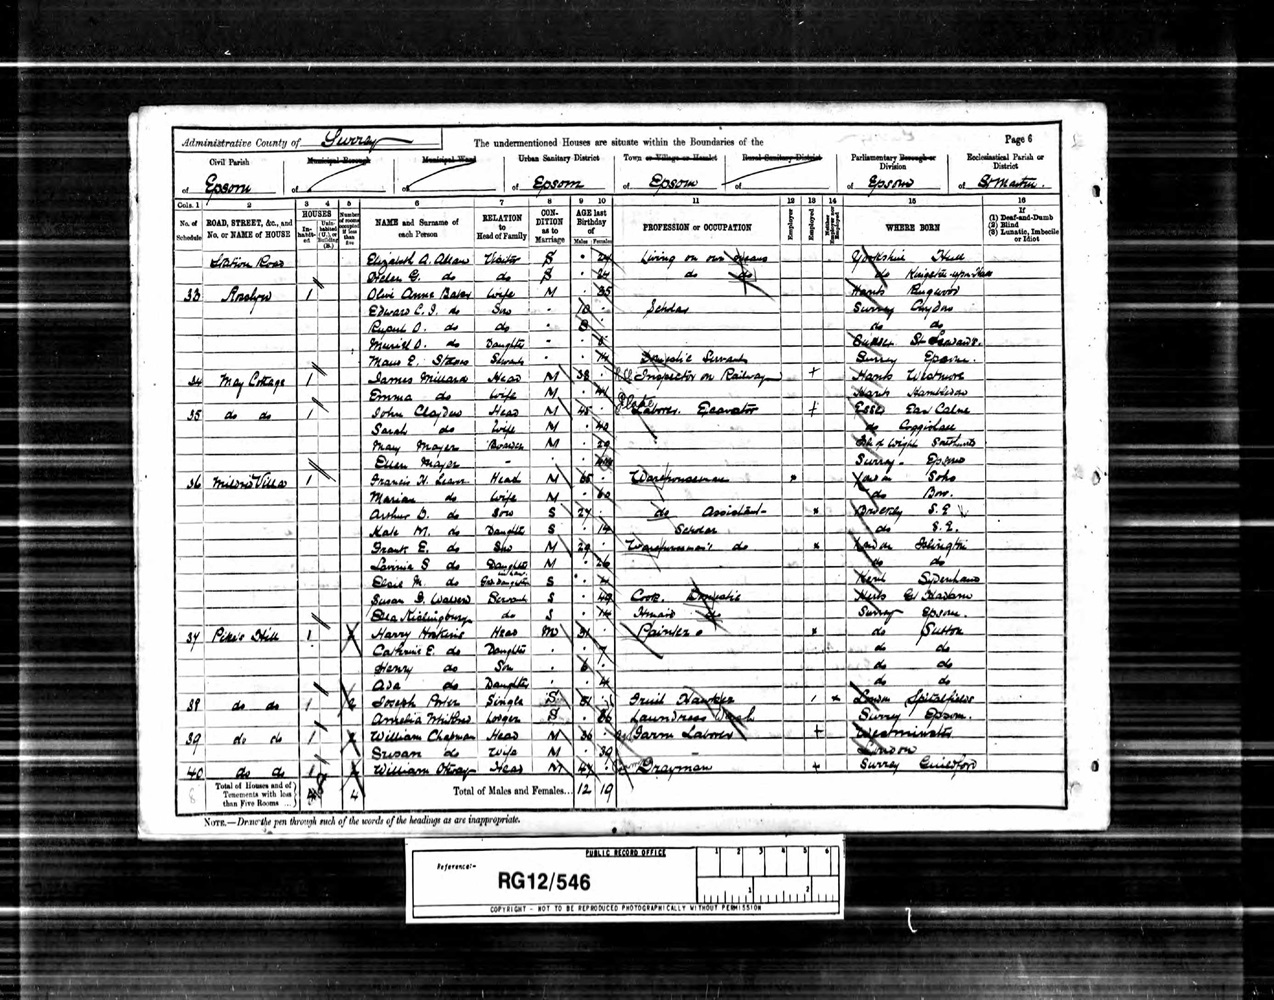 Administrative County of Surrey
The undermentioned Houses are situate within the Boundaries of the
Page 6
Civil Parish of Epsom
Municipal Borough of
Municipal Ward of
Urban Sanitary District of Epsom
Town or Village or Hamlet of Epsom
Rural Sanitary District of
Parliamentary Borough or Division of Epsom
Ecclesiastical Parish or District of St Martin.
Cols. 1 2 3 4 5 6 7 8 9 10 11 12 13 14 15 16
No. of Schedule
ROAD, STREET, &c., and No. or NAME of HOUSE
HOUSES
Inhabited
Uninhabited (U.), or Building (B.)
Number of rooms occupied if less than five
NAME and Surname of each Person
RELATION to Head of Family
CONDITION as to Marriage
AGE last Birthday of
Males Females
PROFESSION or OCCUPATION
Employer
Employed
Neither Employer nor Employed
WHERE BORN
If (1) Deaf-and-Dumb (2) Blind (3) Lunatic, Imbecile or Idiot
Station Road Elizabeth A. Allan Visitor S 24 Living on own means Yorkshire Hull
Helen G. do do S 24 do do do Kingston-upon-Hull
33 Roslyn 1 Olive Anne Baker Wife M 35 Hants Ringwood
Edward C. J. do Son 10 Scholar Surrey Croydon
Rupert O. do do 8 do do
Muriel O. do Daughter 5 Sussex St Leonards.
Servant 14 Domestic Servant Surrey Epsom.
34 May Cottage 1 James Millard Head M 38 Inspector on Railway + Hants
Emma do Wife M 44 Hants Hambledon
35 do do 1 John Clayden Head M 45 Laborer. Excavator + Essex Earls Colne
Sarah do Wife M 40 do Coggeshall
Mary Mayer Boarder M 29 Isle of Wight
Ellen Mayer - Surrey - Epsom
36 Villa 1 Francis H. Head M 65 Warehouseman x London Soho
Marian do Wife M 60 do Bow.
Arthur B. do Son S 24 do Assistant x S.E
Kate M. do Daughter S 14 Scholar do S.E.
Frank E. do Son M 29 Warehouseman's do x London Islington
S do Daughter in law M 26 do do
Elsie M. do Gd Daughter S 4 Kent Sydenham
Susan G. Servant S 49 Cook. Domestic Herts
Ella do S 14 Hmaid do Surrey Epsom.
37 Pike's Hill 1 Harry Hoskins Head M 31 Painter x do Sutton
Catherine E. do Daughter 7 do do
Henry do Son 6 do do
Ada do Daughter 4 do do
38 do do 1 2 Joseph Porter Single S 51 Fruit Hawker x London Spitalfields
Amelia Lodger S 56 Laundress Wash Surrey Epsom.
39 do do 1 William Chapman Head M 36 Farm Laborer + Westminster
Susan do Wife M 39 - London
40 do do 1 4 William Otway Head M 47 Drayman + Surrey Guildford
Total of Houses and of Tenements with less than Five Rooms 8 4 Total of Males and Females... 12 19
NOTE.—Draw the pen through such of the words of the headings as are inappropriate.
PUBLIC RECORD OFFICE
Reference:-
RG12/546
1 2 3 4 5 6
1 2
COPYRIGHT - NOT TO BE REPRODUCED PHOTOGRAPHICALLY WITHOUT PERMISSION